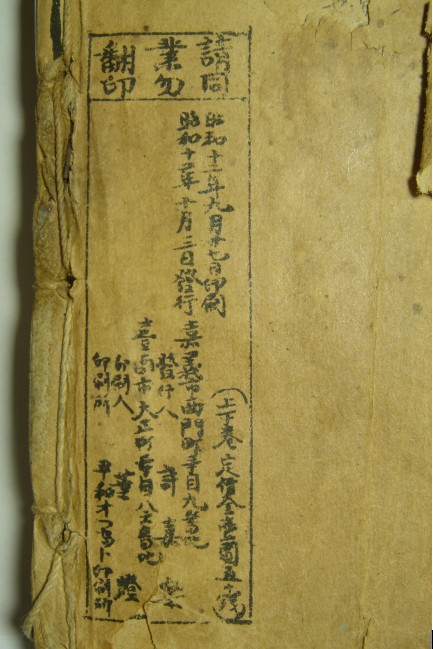 請同業勿翻印
昭和十二年九月廿七日印刷
昭和十二年十月二日發行
(上下卷定價金壹圓五十錢)
嘉義市西門町壹目九番地
發行人 許嘉樂
臺南市大正町壹目八五番地
印刷人 董 燈
印刷所 平和オフセト印刷所